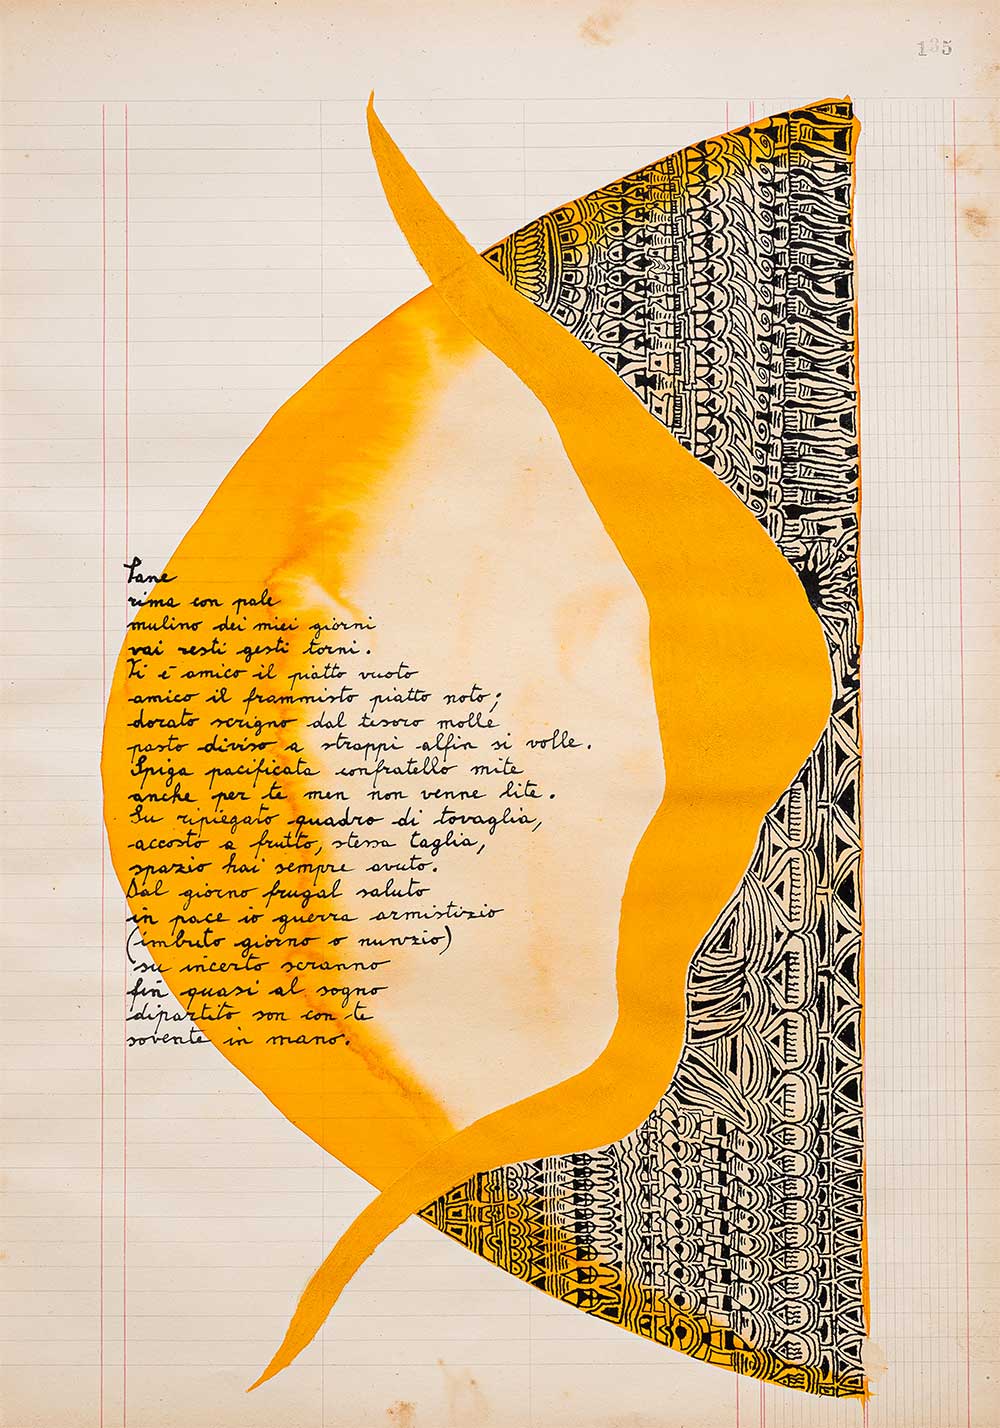 135
Pane
rima con pale
mulino dei miei giorni
vai resti gesti torni.
Ti è amico il piatto vuoto
amico il frammisto piatto noto;
dorato scrigno dal tesoro molle
pasto diviso a strappi alfin si volle.
Spiga pacificata confratello mite
anche per te men non venne lite.
Su ripiegato quadro di tovaglia,
accosto a frutto, stessa taglia,
spazio hai sempre avuto.
Dal giorno frugal saluto
in pace io guerra armistizio
(imbuto giorno o nunzio)
su incerto scranno
fin quasi al sogno
dipartito son con te
sovente in mano.